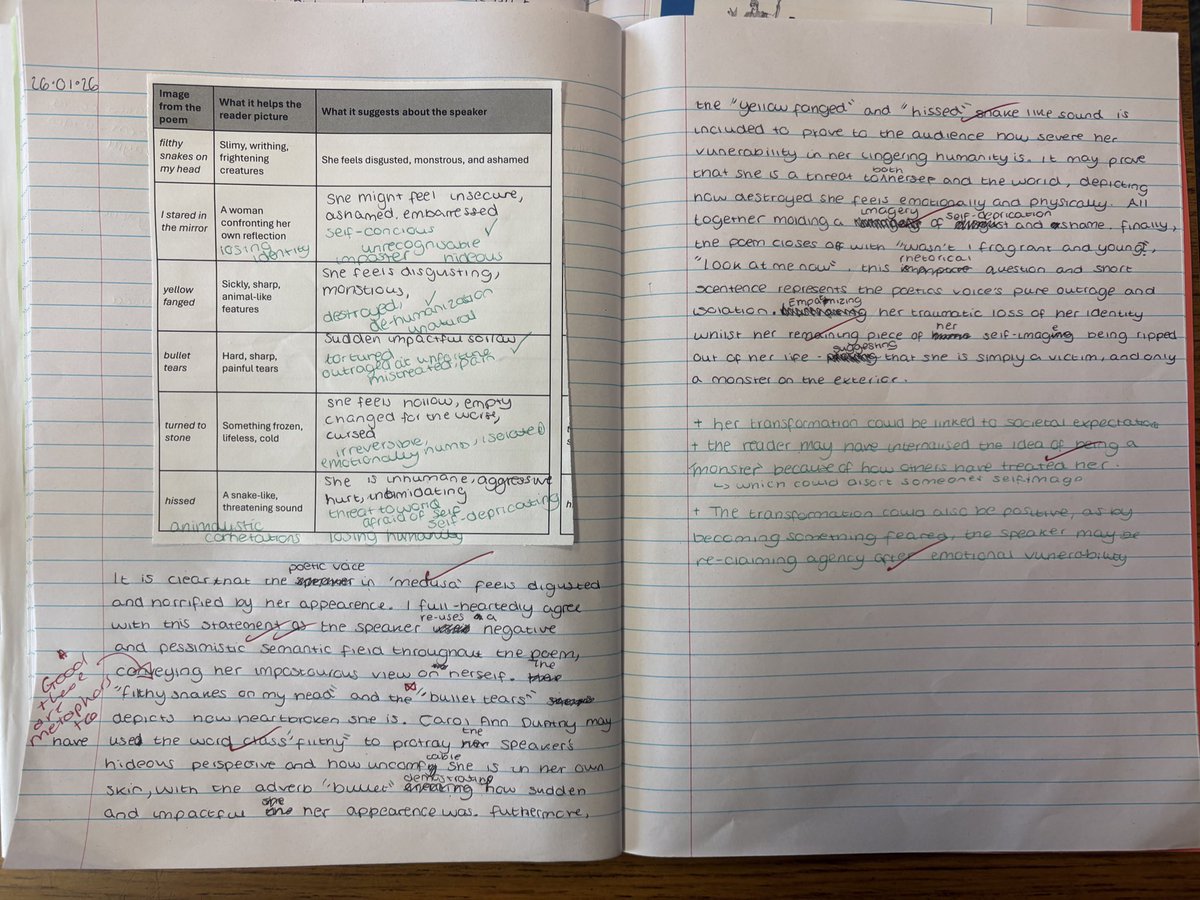 26.01.26
Image from the poem | What it helps the reader picture | What it suggests about the speaker
filthy snakes on my head | Slimy, writhing, frightening creatures | She feels disgusted, monstrous, and ashamed
I stared in the mirror | A woman confronting her own reflection losing identity | She might feel insecure, ashamed, embarressed self-concious unrecognisable imposter hideous
yellow fanged | Sickly, sharp, animal-like features | She feels disgusting, monstious, destroyed, de-humanization unatural
bullet tears | Hard, sharp, painful tears | Sudden impactful sorrow tortured outraged at unfairness mistreated, pain
turned to stone | Something frozen, lifeless, cold | She feels hollow, empty changed for the worse, cursed irreversible, emotionally numb, isolated
hissed | A snake-like, threatening sound | She is inhumane, aggressive hurt, intimidating threat to world afraid of self self-depricating
animalistic connetations losing humanity
It is clear that the poetic voice in 'medusa' feels digusted
and horrified by her appearence. I full-heartedly agree
with this statement as the speaker re-uses a negative
and pessimistic semantic field throughout the poem,
conveying her impostourous view on herself. The
"filthy snakes on my head" and the "bullet tears"
depicts how heartbroken she is. Carol Ann Duffny may
have used the word class "filthy" to protray the speaker's
hideous perspective and how uncomfy cable she is in her own
skin, with the adverb "bullet" demostrating how sudden
and impactful her appearence was. Futhermore,
* Good these are metaphors too
the "yellow fanged" and "hissed" snake like sound is
included to prove to the audience how severe her
vunerability in her lingering humanity is. It may prove
that she is a threat to both herself and the world, depicting
how destroyed she feels emotionally and physically. All
together molding a imagery of self-deprication and shame. Finally,
the poem closes off with "wasn't I fragrant and young",
"look at me now". This rhetorical question and short
scentence represents the poetics voice's pure outrage and
isolation. Empathizing her traumatic loss of her identity
whilst her remaining piece of her self-image being ripped
out of her life - suggesting that she is simply a victim, and only
a monster on the exterior.
+ her transformation could be linked to societal expectations
+ the reader may have internalised the idea of being a
'monster' because of how others have treated her.
↳ which could disort someones selfimage
+ The transformation could also be positive, as by
becoming something feared, the speaker may be
re-claiming agency after emotional vunerability